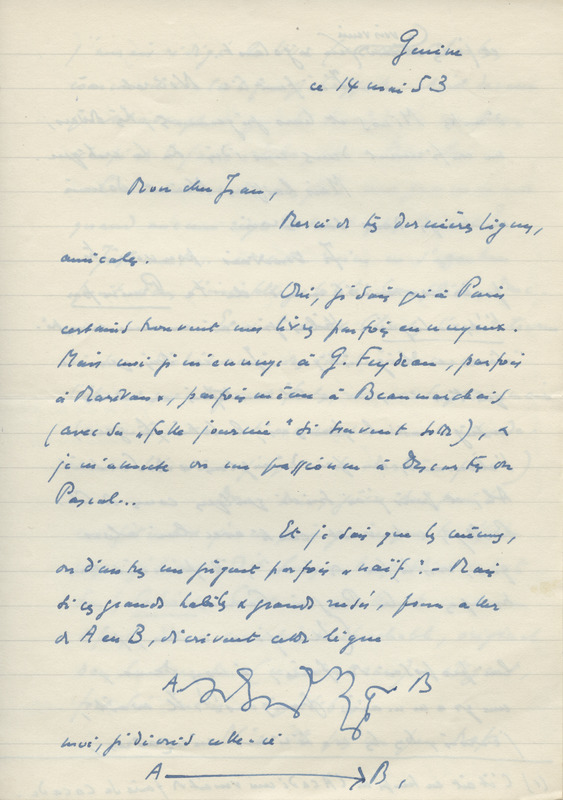 Genève
ce 14 mai 53
Mon cher Jean,
Merci de tes dernières lignes,
amicales.
Oui, je sais qu'à Paris
certains trouvent mes livres parfois ennuyeux.
Mais moi je m'ennuye à G. Feydeau, parfois
à Marivaux, parfois même à Beaumarchais
(avec sa „folle journée" si souvent sotte), &
je m'amuse ou me passionne à Descartes ou
Pascal...
Et je sais que les mêmes,
ou d'autres me jugent parfois „naïf". - Mais
si ces grands habiles & grands rusés, pour aller
de A en B, décrivent cette ligne
A B
moi, je décris celle-ci
A B,